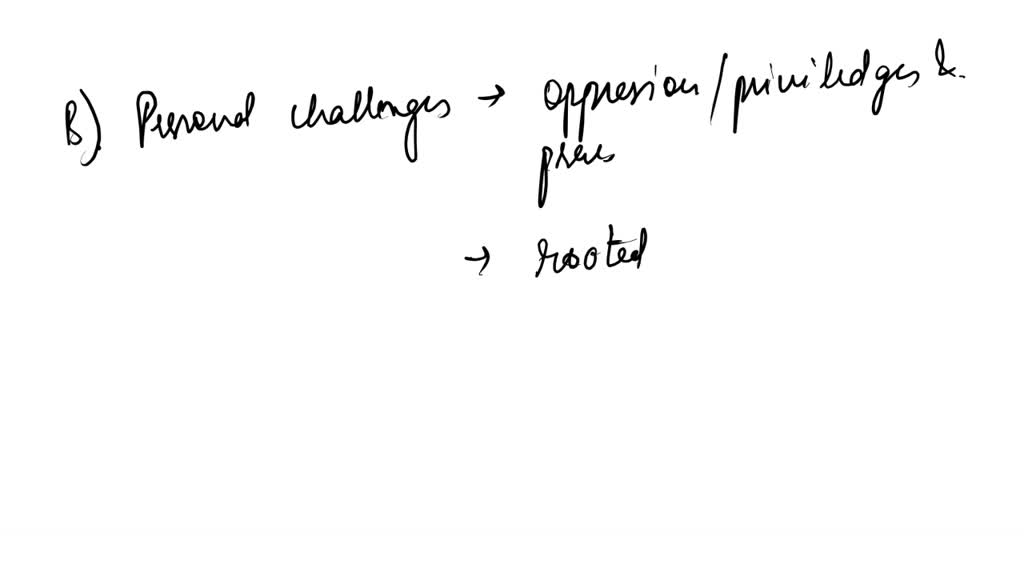 B). Personal challenges → oppression / priviledges &
→ rooted